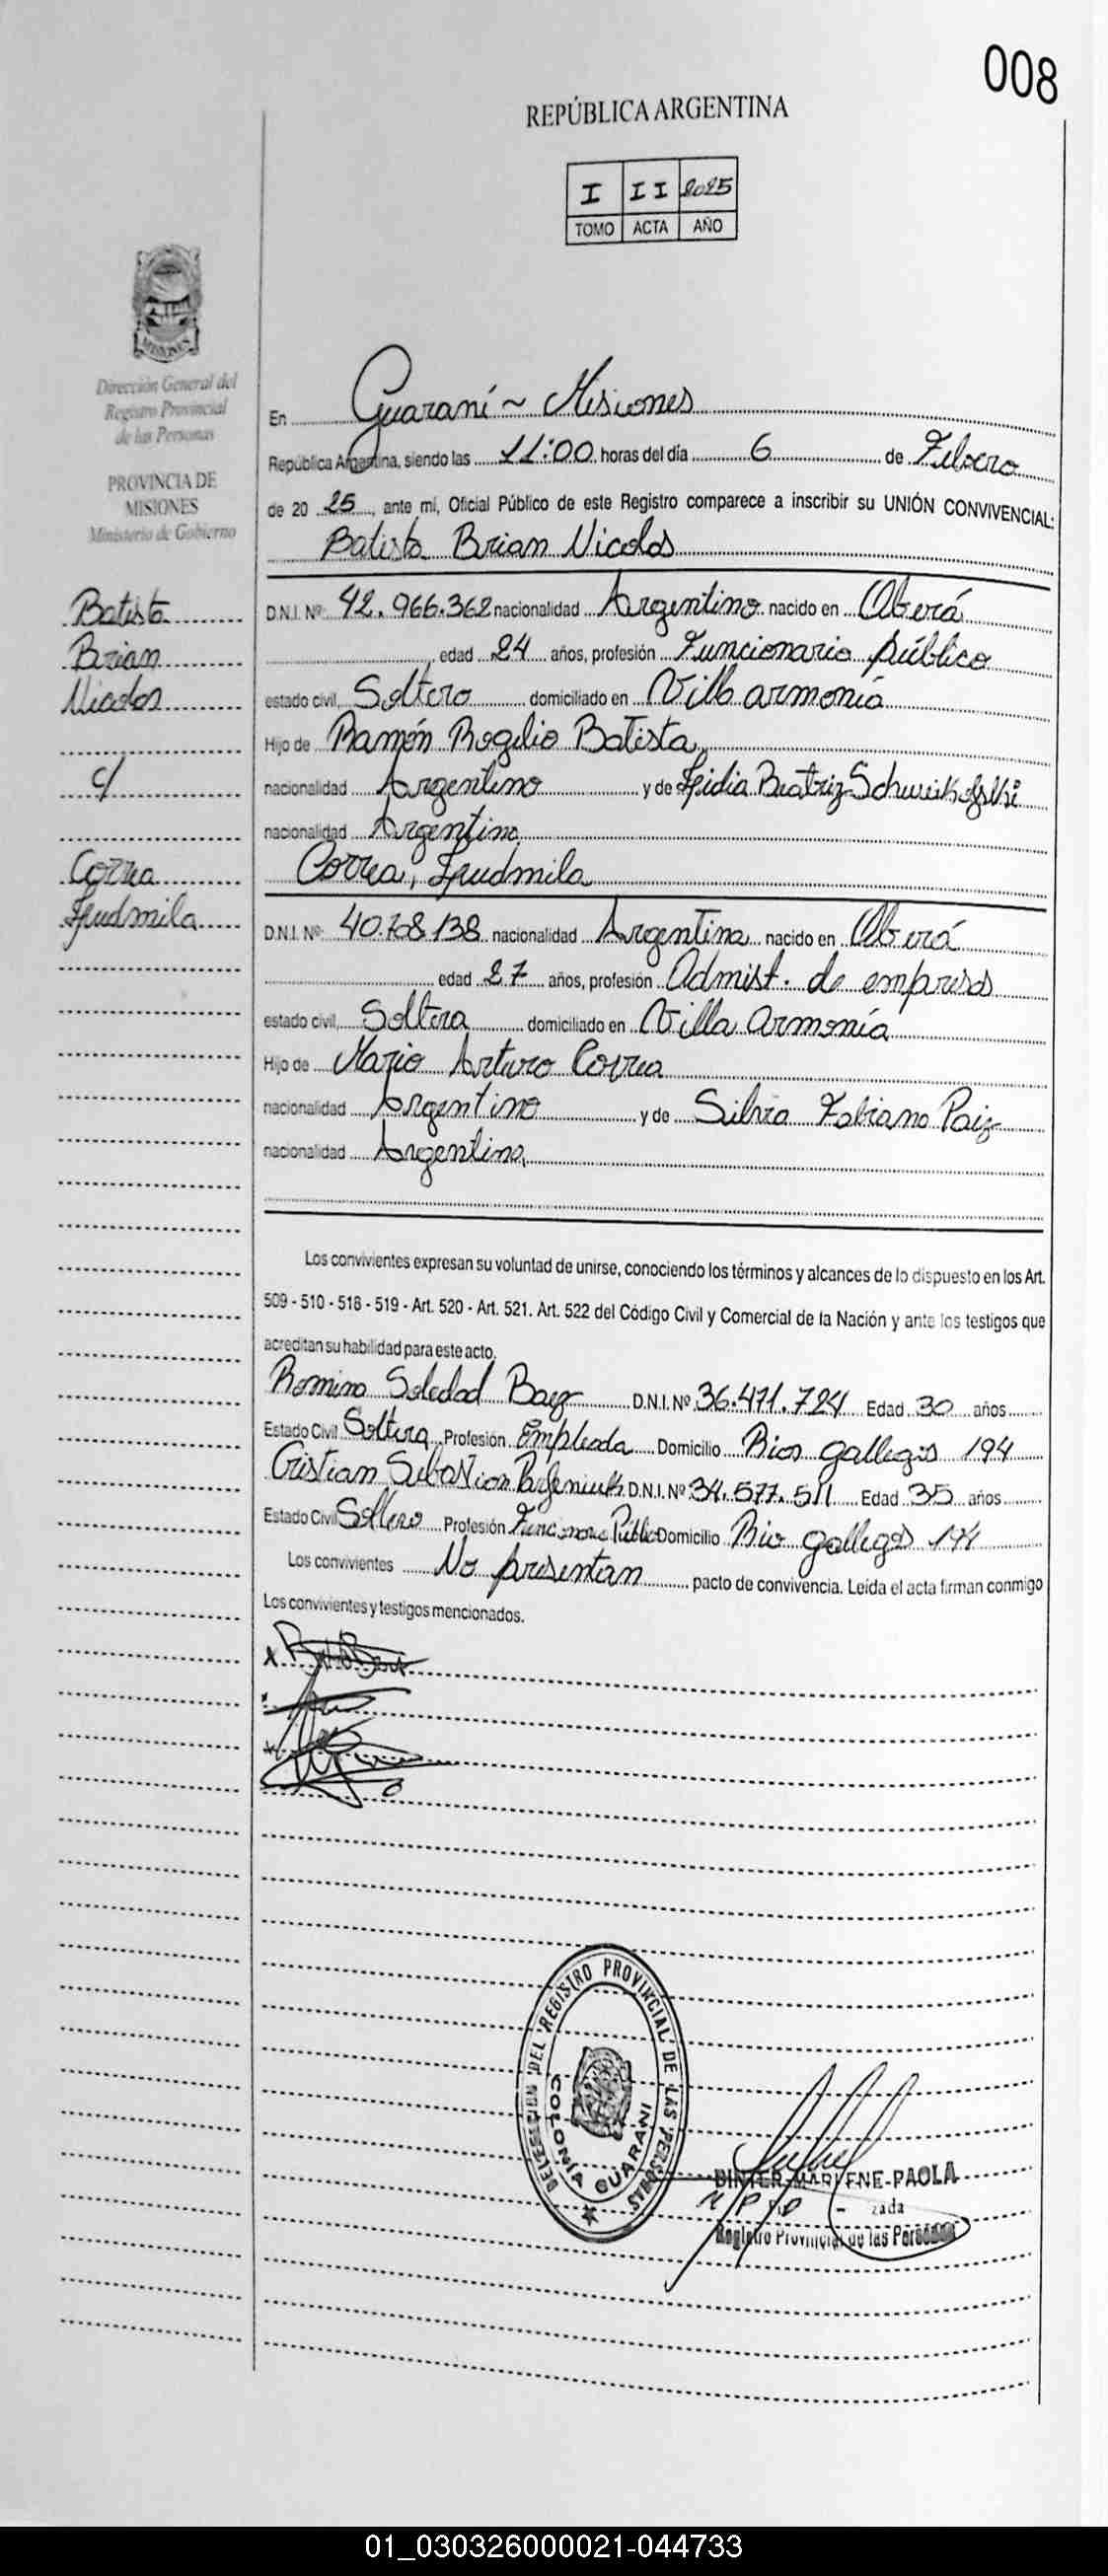 008
REPÚBLICA ARGENTINA
I II 2025
TOMO ACTA AÑO
MISIONES
Dirección General del
Registro Provincial
de las Personas
PROVINCIA DE
MISIONES
Ministerio de Gobierno
Batista
Brian
Nicolas
c/
Correa
Ludmila
En Guaraní ~ Misiones
República Argentina, siendo las 11:00 horas del día 6 de Febrero
de 20 25, ante mi, Oficial Público de este Registro comparece a inscribir su UNIÓN CONVIVENCIAL:
Batista Brian Nicolas
D.N.I. Nº 42.966.362 nacionalidad Argentino nacido en Oberá
edad 24 años, profesión Funcionario público
estado civil, Soltero domiciliado en Villa armonía
Hijo de Ramón Rogelio Batista
nacionalidad Argentino y de Lidia Beatriz
nacionalidad Argentina
Correa, Ludmila
D.N.I. Nº 40.708.138 nacionalidad Argentina nacido en Oberá
edad 27 años, profesión Admist. de empresas
estado civil, Soltera domiciliado en Villa Armonía
Hijo de Mario Arturo Correa
nacionalidad Argentino y de Silvia Fabiana Paiz
nacionalidad Argentina
Los convivientes expresan su voluntad de unirse, conociendo los términos y alcances de lo dispuesto en los Art.
509 - 510 - 518 - 519 - Art. 520 - Art. 521. Art. 522 del Código Civil y Comercial de la Nación y ante los testigos que
acreditan su habilidad para este acto.
Romina Soledad Baez D.N.I. Nº 36.471.724 Edad 30 años
Estado Civil Soltera Profesión Empleada Domicilio Rios gallegos 194
Cristian Sebastian D.N.I. Nº 34.577.511 Edad 35 años
Estado Civil Soltero Profesión Funcionario Público Domicilio Rio gallegos
Los convivientes No presentan pacto de convivencia. Leída el acta firman conmigo
Los convivientes y testigos mencionados.
DELEGACION DEL REGISTRO PROVINCIAL DE LAS PERSONAS
COLONIA GUARANI
DINTER MARLENE PAOLA
Registro Provincial de las Personas
01_030326000021-044733